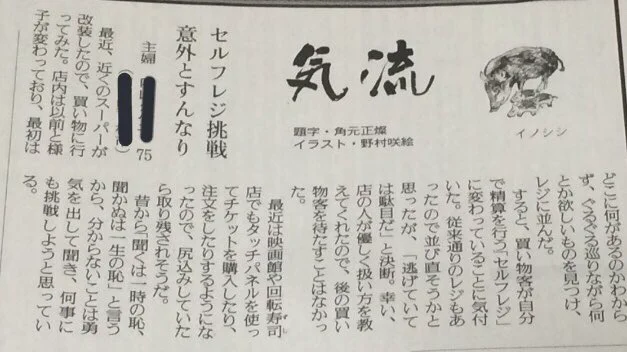 気流
題字・角元正燦
イラスト・野村咲絵
イノシシ
セルフレジ挑戦
意外とすんなり
主婦
75
最近、近くのスーパーが
改装したので、買い物に行
ってみた。店内は以前と様
子が変わっており、最初は
どこに何があるのかわから
ず、ぐるぐる巡りながら何
とか欲しいものを見つけ、
レジに並んだ。
すると、買い物客が自分
で精算を行う「セルフレジ」
に変わっていることに気付
いた。従来通りのレジもあ
ったので並び直そうかと
思ったが、「逃げていて
は駄目だ」と決断。幸い、
店の人が優しく扱い方を教
えてくれたので、後の買い
物客を待たすことはなかっ
た。
最近は映画館や回転寿司
店でもタッチパネルを使っ
てチケットを購入したり、
注文をしたりするようにな
ったので、尻込みしていた
ら取り残されそうだ。
昔から「聞くは一時の恥、
聞かぬは一生の恥」と言う
から、分からないことは勇
気を出して聞き、何事に
も挑戦しようと思ってい
る。